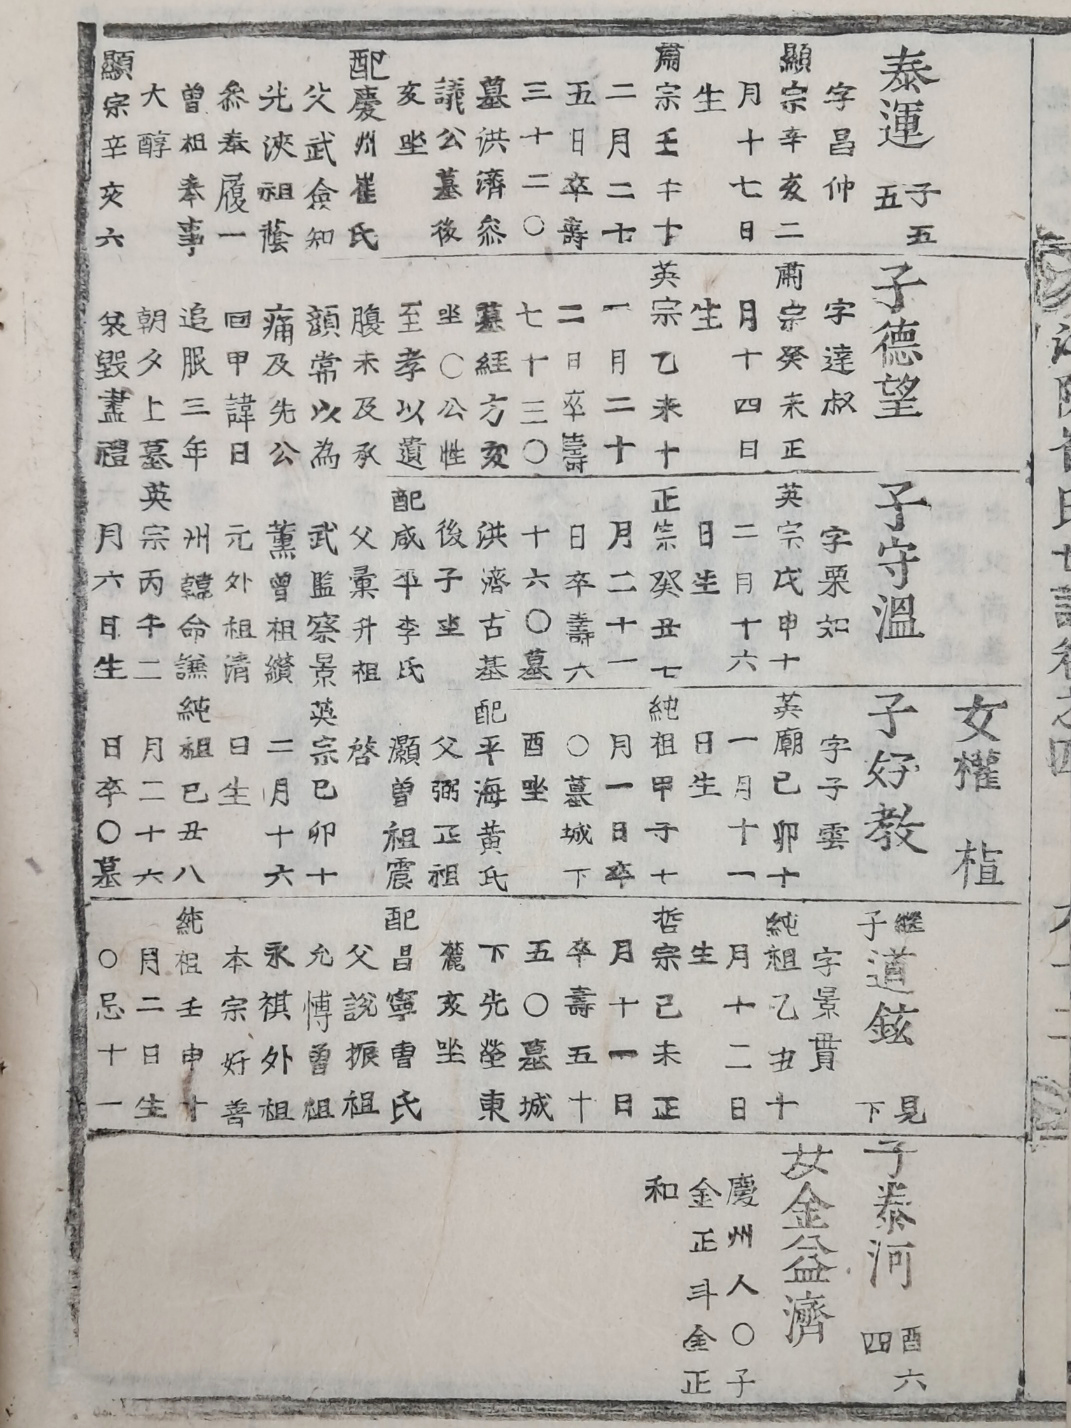 氏世譜卷之四
泰運 子五
五
字昌仲
顯宗辛亥二
月十七日
生
肅宗壬午十
二月二十
五日卒壽
三十二〇
墓洪濟參
議公墓後
亥坐
配慶州崔氏
父武僉知
光浹祖蔭
參奉履一
曾祖奉事
大醇
顯宗辛亥六
子德望
字達叔
肅宗癸未正
月十四日
生
英宗乙未十
一月二十
二日卒壽
七十三〇
墓經方亥
坐〇公性
至孝以遺
腹未及承
顔常以為
痛及先公
回甲諱日
追服三年
朝夕上墓
衰毀盡禮
子守溫
字栗如
英宗戊申十
二月十六
日生
正宗癸丑七
月二十一
日卒壽六
十六〇墓
洪濟古基
後子坐
配咸平李氏
父彙升祖
武監察景
薰曾祖纘
元外祖清
州韓命譓
英宗丙午二
月六日生
女權 植
子好教
字子雲
英廟己卯十
一月十一
日生
純祖甲子七
月一日卒
〇墓城下
酉坐
配平海黃氏
父弼正祖
灝曾祖震
啓
英宗己卯十
二月十六
日生
純祖己丑八
月二十六
日卒〇墓
繼子道鉉 見下
字景貫
純祖乙丑十
月十二日
生
哲宗己未正
月十一日
卒壽五十
五〇墓城
下先塋東
麓亥坐
配昌寧曺氏
父說振祖
允愽曾祖
永祺外祖
本宗好善
純祖壬申十
月二日生
〇忌十一
子泰河 酉六
四
女金益濟
慶州人〇子
金正斗金正
和